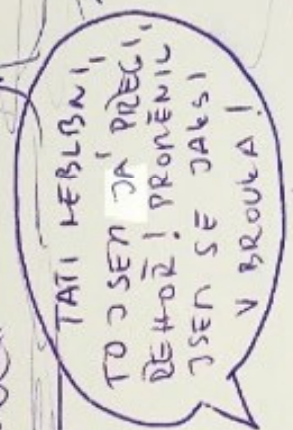 TATI NEBLBNI,
TO JSEM JÁ PŘECI,
ŘEHOŘ! PROMĚNIL
JSEM SE JAKSI
V BROUKA!